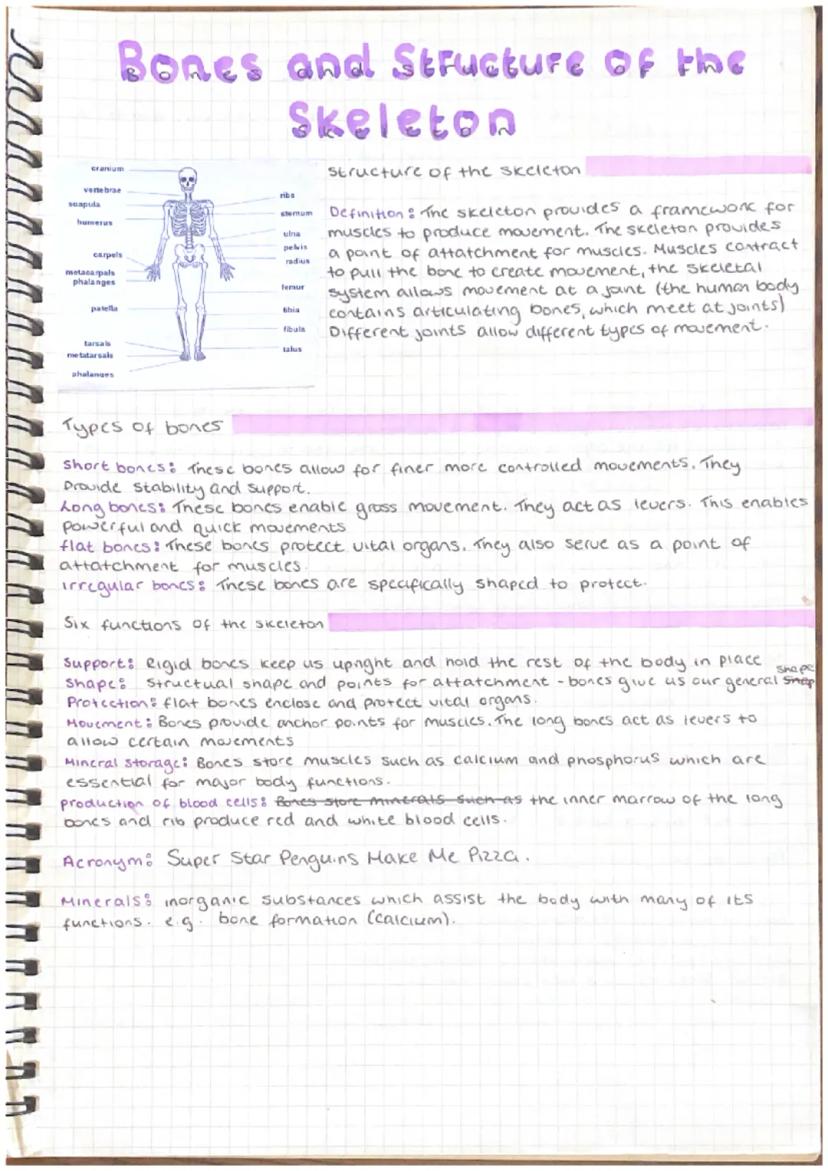 Bones and Structure of the
Skeleton
cranium
vertebrae
scapula
humerus
carpels
metacarpals
phalanges
patella
tarsals
metatarsals
phalanges
ribs
sternum
ulna
pelvis
radius
femur
tibia
fibula
talus
Structure of the skeleton
Definition: The skeleton provides a framework for
muscles to produce movement. The skeleton provides
a point of attatchment for muscles. Muscles contract
to pull the bone to create movement, the skeletal
system allows movement at a joint (the human body
contains articulating bones, which meet at joints)
Different joints allow different types of movement.
Types of bones
Short bones: These bones allow for finer more controlled movements. They
Provide stability and support.
Long bones: These bones enable gross movement. They act as levers. This enables
powerful and quick movements
flat bones: These bones protect vital organs. They also serve as a point of
attatchment for muscles.
Irregular bones: These bones are specifically shaped to protect.
Six functions of the skeleton
Support: Rigid bones keep us upright and hold the rest of the body in place
Shape: Structual shape and points for attatchment - bones give us our general snap shape
Protection: flat bones enclose and protect vital organs.
Movement: Bones provide anchor points for muscles. The long bones act as levers to
allow certain movements
Mineral Storage: Bones store muscles such as calcium and phosphorus which are
essential for major body functions.
production of blood cells: Bones store minerals such as the inner marrow of the long
bones and rib produce red and white blood cells.
Acronym: Super Star Penguins Make Me Pizza.
Minerals: inorganic substances which assist the body with many of its
functions. e.g. bone formation (calcium).